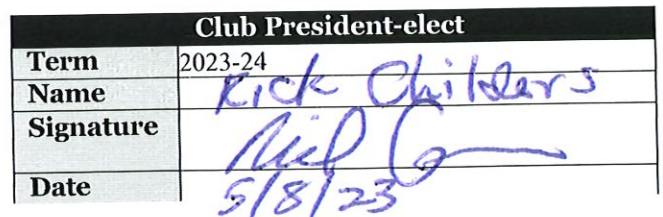 Club President-elect
Term 2023-24
Name Rick Childers
Signature
Date 5/8/23